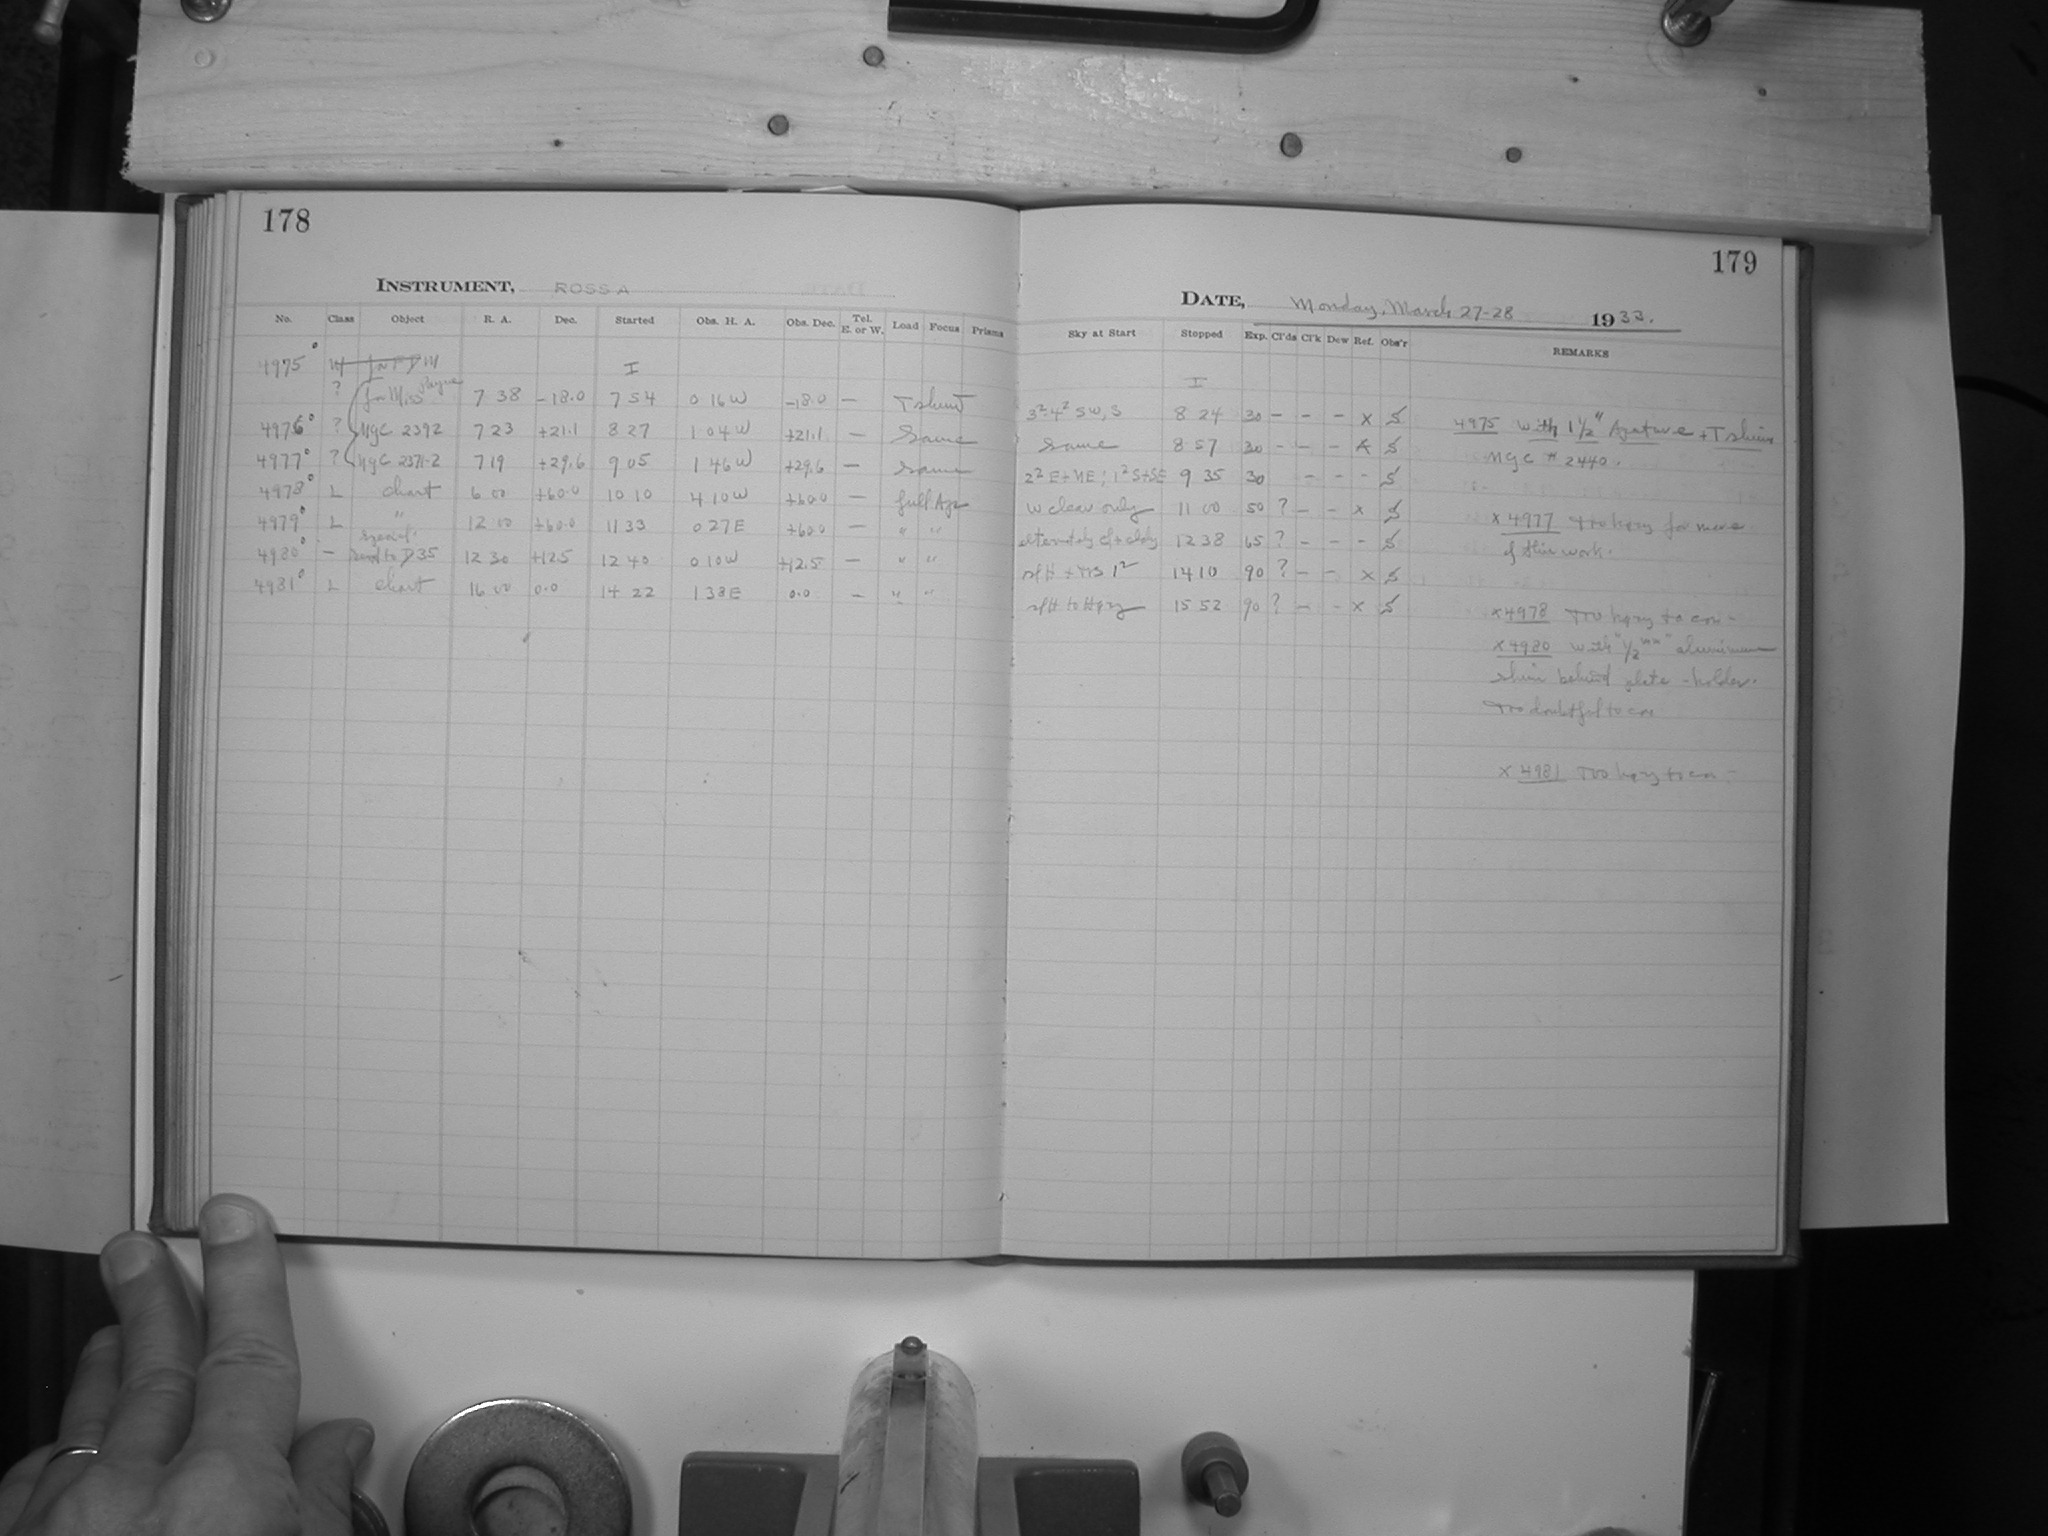 178
INSTRUMENT, ROSS A
No. Class Object R. A. Dec. Started Obs. H. A. Obs. Dec. Tel. E. or W. Load Focus Prisms
4975° I
? for Miss Payne 7 38 -18.0 7 54 0 16 W -18.0 — T shunt
4976° ? NGC 2392 7 23 +21.1 8 27 1 04 W +21.1 — Same
4977° ? NGC 2371-2 7 19 +29.6 9 05 1 46 W +29.6 — Same
4978° L chart 6 00 +60.0 10 10 4 10 W +60.0 — full Ap
4979° L " 12 00 +60.0 11 33 0 27 E +60.0 — " "
4980° — special D35 12 30 +12.5 12 40 0 10 W +12.5 — " "
4981° L chart 16 00 0.0 14 22 1 38 E 0.0 — " "
179
DATE, Monday, March 27-28 1933.
Sky at Start Stopped Exp. Cl'ds Cl'k Dew Ref. Obs'r REMARKS
I
3² 4² SW, S 8 24 30 — — — x S
same 8 57 30 — — — x S
2² E+NE; 1² S+SE 9 35 30 — — - S
W clear only 11 00 50 ? — — x S
alternately cl + cldy 12 38 65 ? — — - S
1² 14 10 90 ? — — x S
to Hazy 15 52 90 ? — — x S
4975 with 1½" Aperture + T shim
NGC # 2440.
x 4977 Too hazy for more
of this work.
x 4978 Too hazy to con-
x 4980 with "½ mm" aluminum
shim behind plate-holder.
Too doubtful to con
x 4981 Too hazy to con-